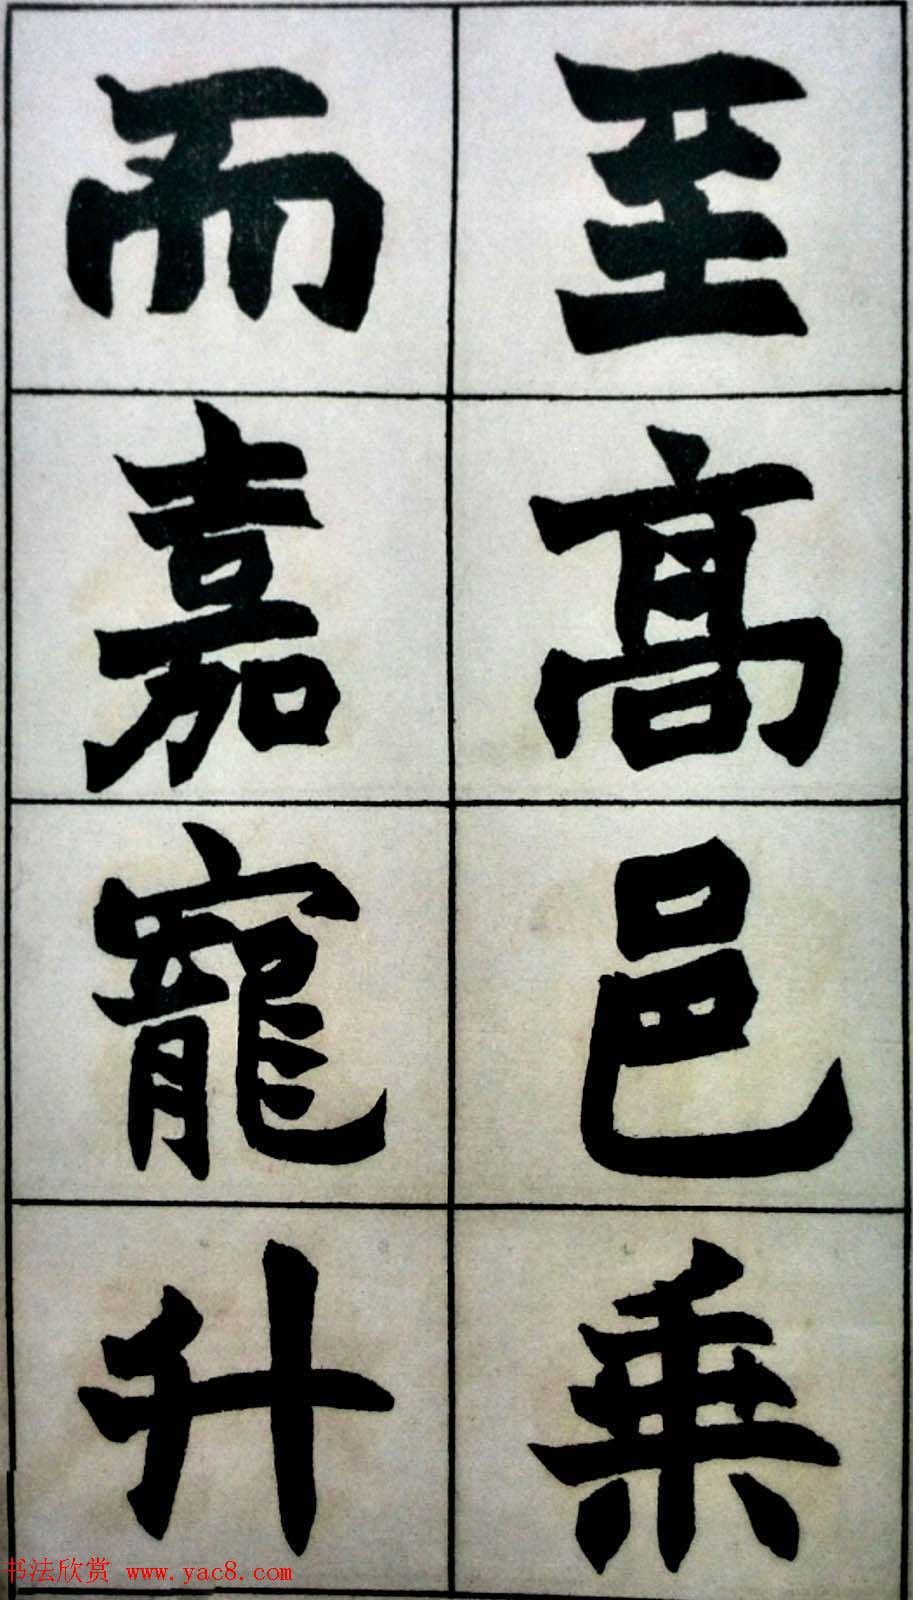 至高邑乗
而嘉寵升
书法欣赏 www.yac8.com